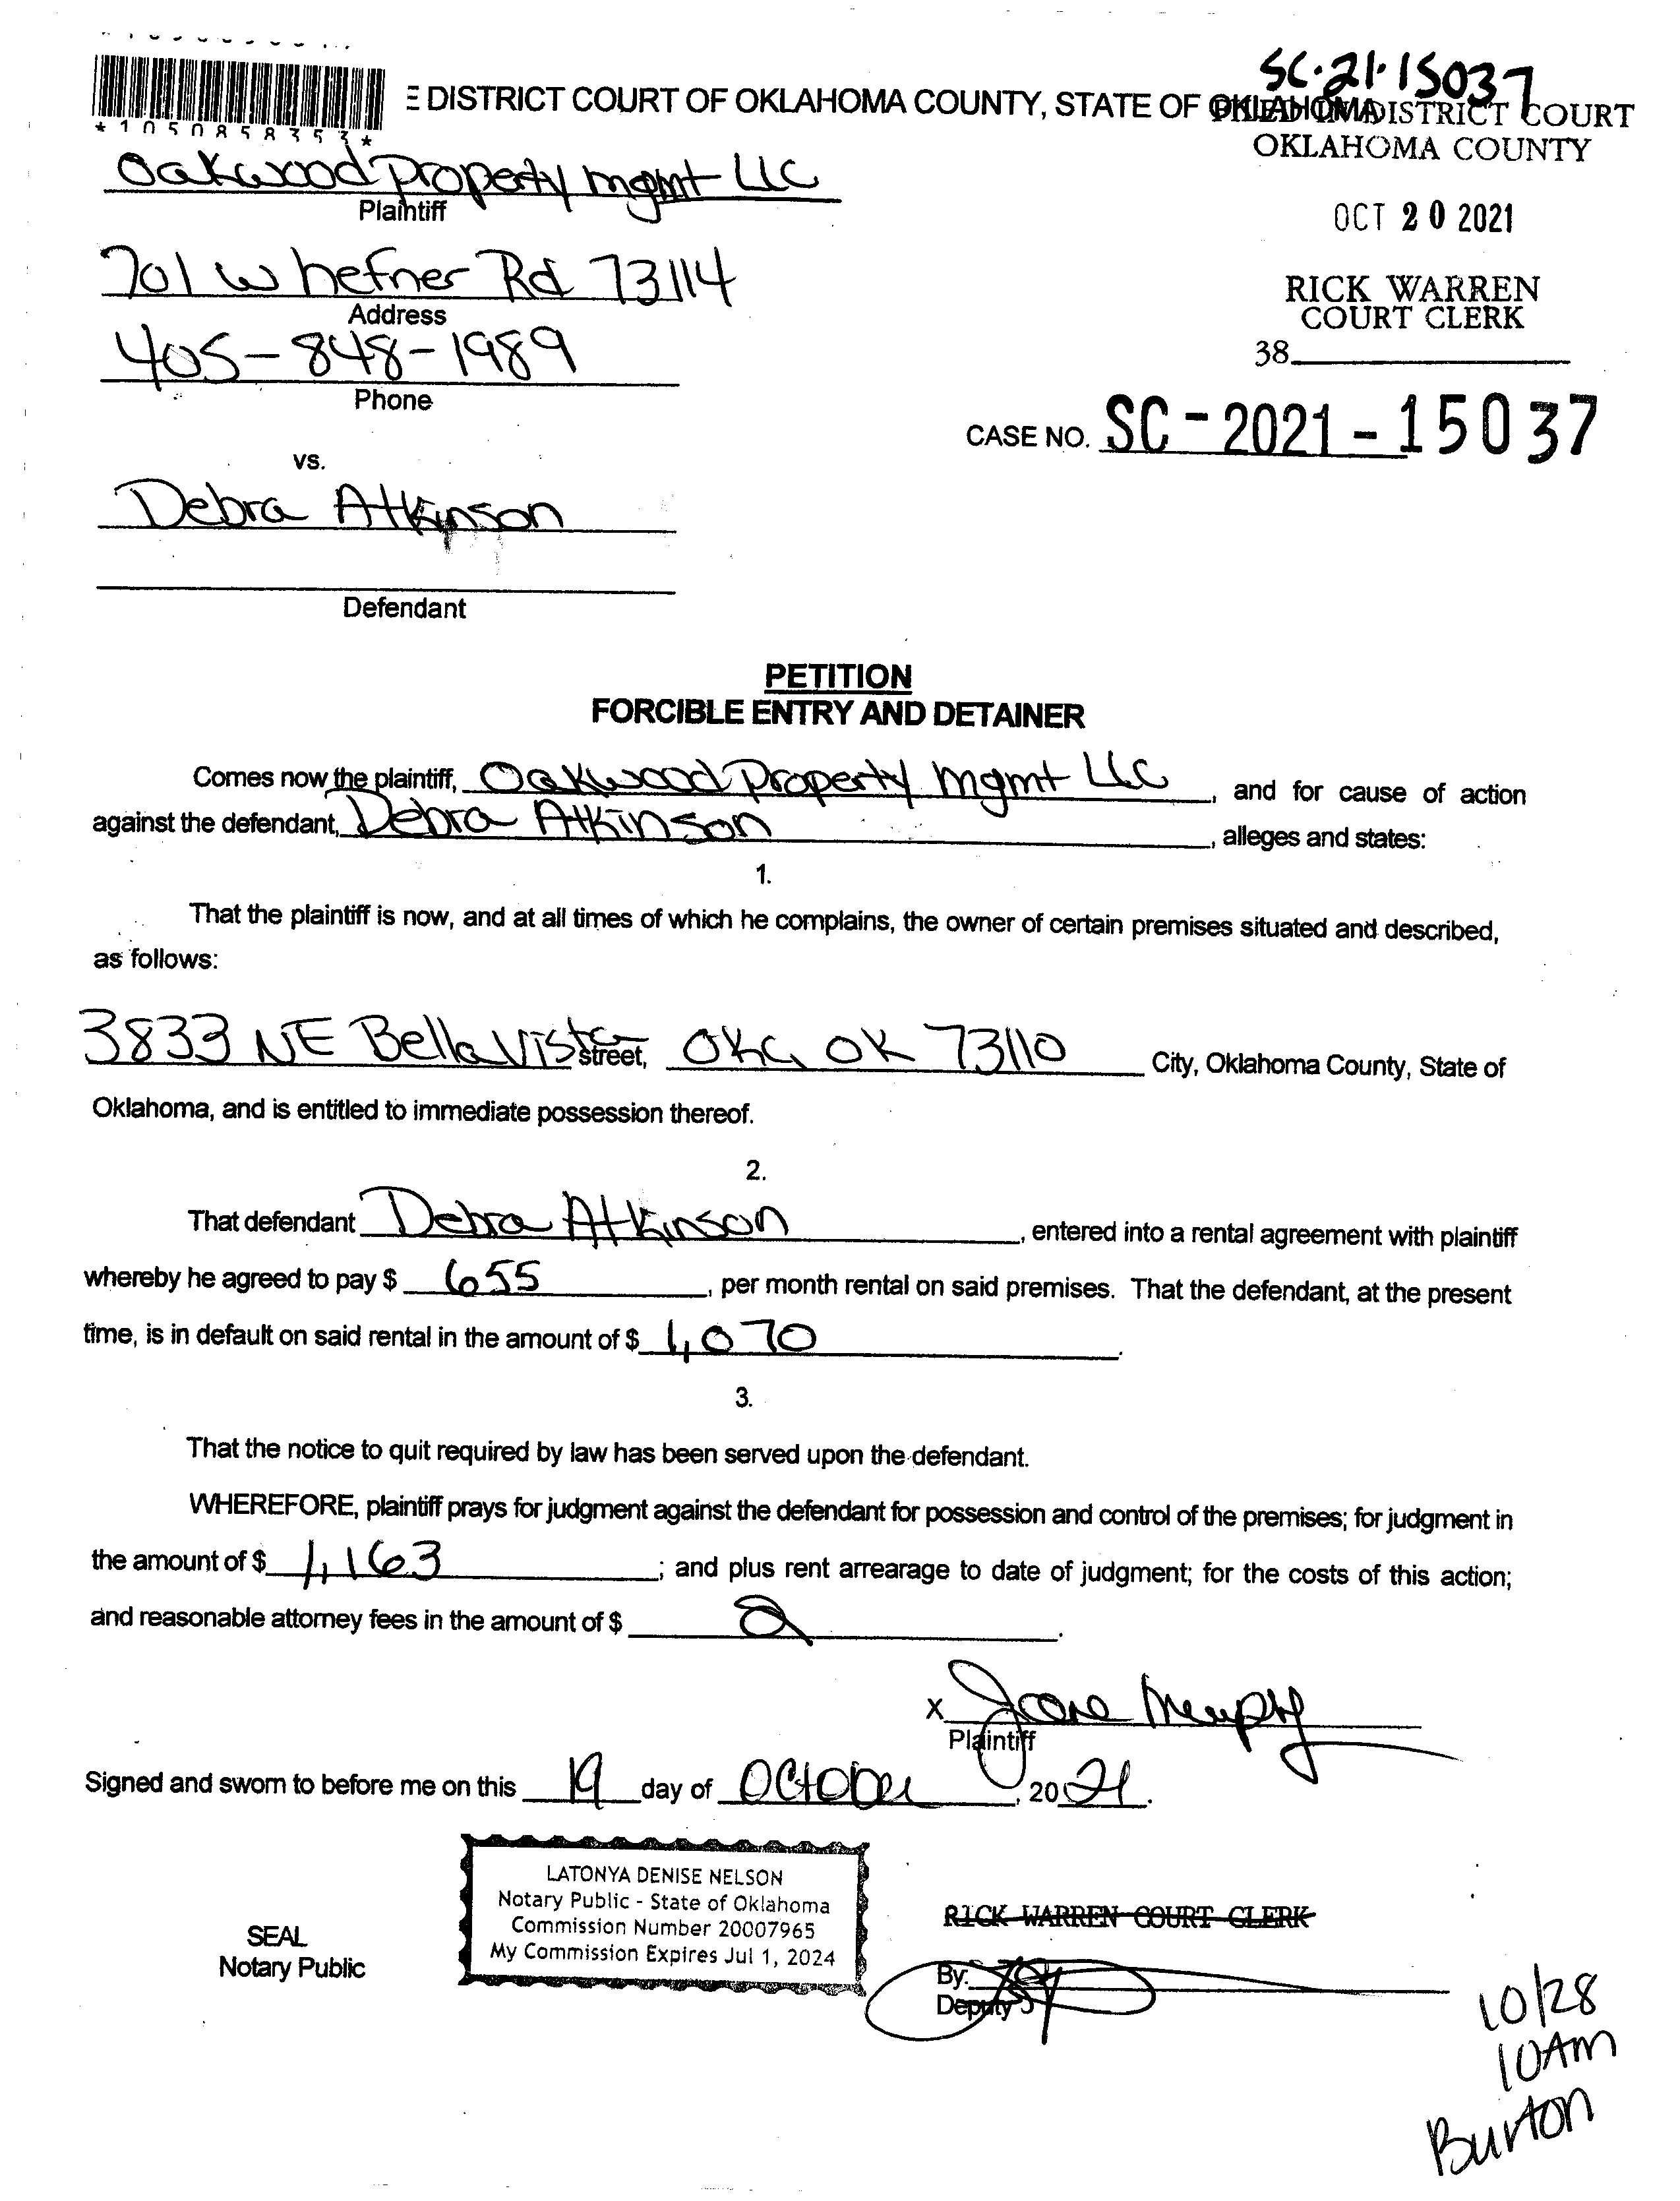 SC-21-15037
E DISTRICT COURT OF OKLAHOMA COUNTY, STATE OF OKLAHOMA
FILED IN DISTRICT COURT
OKLAHOMA COUNTY
*1050858353*
Oakwood Property mgmt LLC
Plaintiff
OCT 20 2021
701 W hefner Rd 73114
Address
RICK WARREN
COURT CLERK
405-848-1989
Phone
38
CASE NO. SC-2021-15037
vs.
Debra Atkinson
Defendant
PETITION
FORCIBLE ENTRY AND DETAINER
Comes now the plaintiff, Oakwood Property mgmt LLC, and for cause of action
against the defendant, Debra Atkinson, alleges and states:
1.
That the plaintiff is now, and at all times of which he complains, the owner of certain premises situated and described,
as follows:
3833 NE Bella Vista street, OKC, OK 73110 City, Oklahoma County, State of
Oklahoma, and is entitled to immediate possession thereof.
2.
That defendant Debra Atkinson, entered into a rental agreement with plaintiff
whereby he agreed to pay $ 655, per month rental on said premises. That the defendant, at the present
time, is in default on said rental in the amount of $ 1,070.
3.
That the notice to quit required by law has been served upon the defendant.
WHEREFORE, plaintiff prays for judgment against the defendant for possession and control of the premises; for judgment in
the amount of $ 1,163; and plus rent arrearage to date of judgment; for the costs of this action;
and reasonable attorney fees in the amount of $.
x Joane Murphy
Plaintiff
Signed and sworn to before me on this 19 day of October, 2021.
LATONYA DENISE NELSON
Notary Public - State of Oklahoma
Commission Number 20007965
My Commission Expires Jul 1, 2024
SEAL
Notary Public
RICK WARREN COURT CLERK
By:
Deputy
10/28
10Am
Burton